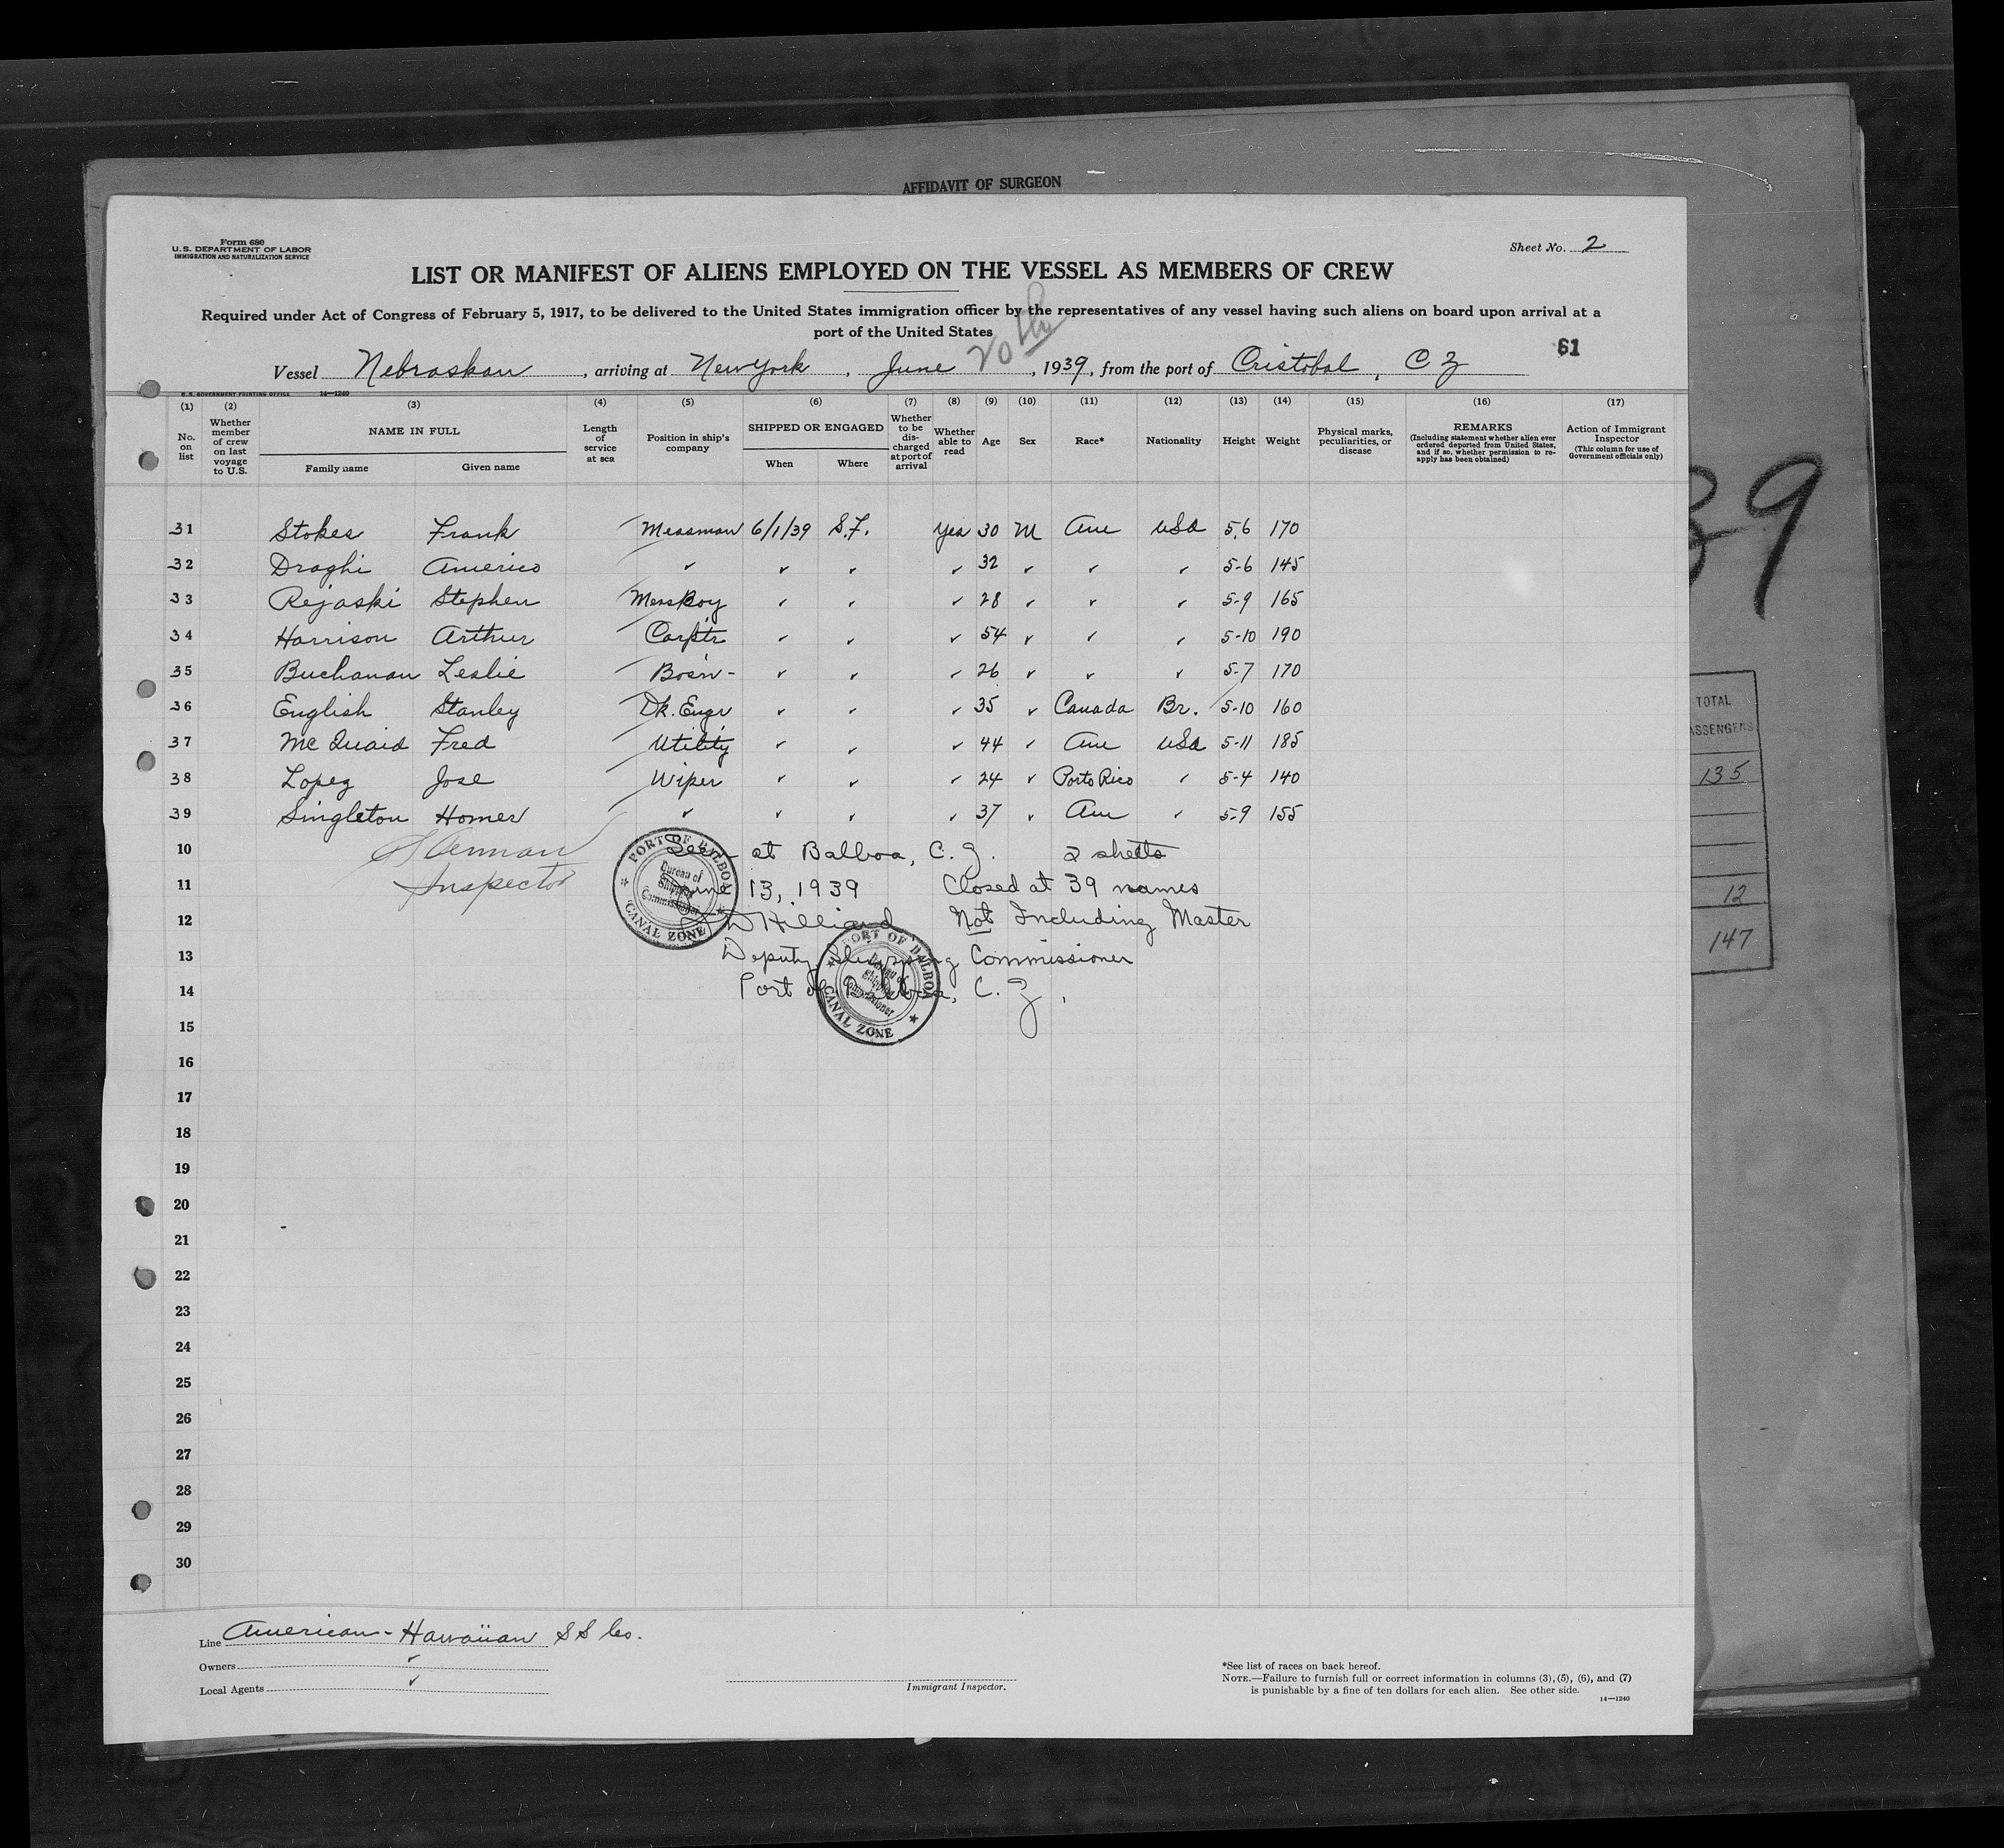 AFFIDAVIT OF SURGEON
Form 680
U. S. DEPARTMENT OF LABOR
IMMIGRATION AND NATURALIZATION SERVICE
Sheet No. 2
LIST OR MANIFEST OF ALIENS EMPLOYED ON THE VESSEL AS MEMBERS OF CREW
Required under Act of Congress of February 5, 1917, to be delivered to the United States immigration officer by the representatives of any vessel having such aliens on board upon arrival at a
port of the United States
61
Vessel Nebraskan, arriving at New York, June 20th, 1939, from the port of Cristobal, C Z
U. S. GOVERNMENT PRINTING OFFICE 14—1240
(1) (2) (3) (4) (5) (6) (7) (8) (9) (10) (11) (12) (13) (14) (15) (16) (17)
No. on list
Whether member of crew on last voyage to U.S.
NAME IN FULL
Family name Given name
Length of service at sea
Position in ship's company
SHIPPED OR ENGAGED
When Where
Whether to be discharged at port of arrival
Whether able to read
Age
Sex
Race*
Nationality
Height
Weight
Physical marks, peculiarities, or disease
REMARKS
(Including statement whether alien ever ordered deported from United States, and if so, whether permission to re-apply has been obtained)
Action of Immigrant Inspector
(This column for use of Government officials only)
31 Stokes Frank Messman 6/1/39 S.F. Yes 30 M Am USA 5.6 170
32 Draghi Americo ✓ ✓ ✓ ✓ 32 ✓ ✓ ✓ 5-6 145
33 Rejaski Stephen MessBoy ✓ ✓ ✓ 28 ✓ ✓ ✓ 5-9 165
34 Harrison Arthur Carptr ✓ ✓ ✓ 54 ✓ ✓ ✓ 5-10 190
35 Buchanan Leslie Bosn- ✓ ✓ ✓ 26 ✓ ✓ ✓ 5-7 170
36 English Stanley Dk. Engr ✓ ✓ ✓ 35 ✓ Canada Br. 5-10 160
37 McQuaid Fred Utility ✓ ✓ ✓ 44 ✓ Am USA 5-11 185
38 Lopez Jose Wiper ✓ ✓ ✓ 24 ✓ Porto Rico ✓ 5-4 140
39 Singleton Homer ✓ ✓ ✓ ✓ 37 ✓ Am ✓ 5-9 155
10 Seen at Balboa, C. Z. 2 sheets
11 Inspector June 13, 1939 Closed at 39 names
12 Hilliard Not Including Master
13 Deputy Shipping Commissioner
14 Port of Balboa, C. Z.
PORT OF BALBOA
Bureau of Shipping Commissioner
CANAL ZONE
PORT OF BALBOA
Bureau of Shipping Commissioner
CANAL ZONE
15
16
17
18
19
20
21
22
23
24
25
26
27
28
29
30
Line American-Hawaiian S S Co.
Owners ✓
Local Agents ✓
Immigrant Inspector.
*See list of races on back hereof.
NOTE.—Failure to furnish full or correct information in columns (3), (5), (6), and (7)
is punishable by a fine of ten dollars for each alien. See other side.
14—1240
39
TOTAL
PASSENGERS
135
12
147